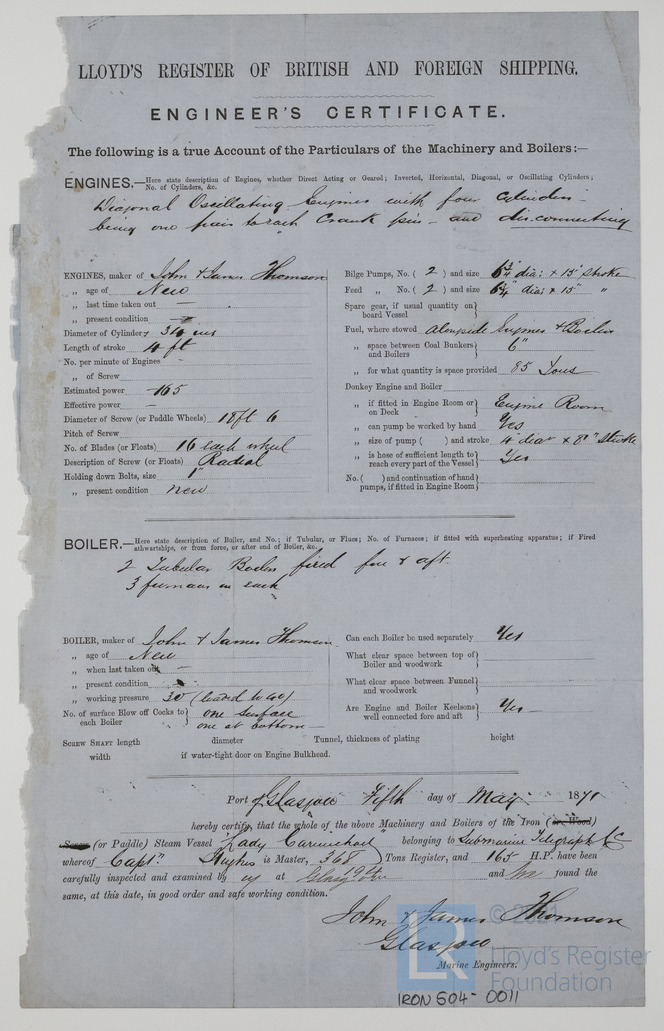 LLOYD'S REGISTER OF BRITISH AND FOREIGN SHIPPING.
ENGINEER'S CERTIFICATE.
The following is a true Account of the Particulars of the Machinery and Boilers:—
ENGINES.—Here state description of Engines, whether Direct Acting or Geared; Inverted, Horizontal, Diagonal, or Oscillating Cylinders;
No. of Cylinders, &c.
Diagonal Oscillating Engines with four cylinders
being one pair to each Crank pin – and disconnecting
ENGINES, maker of John & James Thomson
„ age of New
„ last time taken out —
„ present condition —
Diameter of Cylinders 34 ins
Length of stroke 4 ft
No. per minute of Engines
„ of Screw
Estimated power 165
Effective power —
Diameter of Screw (or Paddle Wheels) 18ft 6
Pitch of Screw
No. of Blades (or Floats) 16 each wheel
Description of Screw (or Floats) Radial
Holding down Bolts, size 1"
„ present condition new
Bilge Pumps, No. ( 2 ) and size dia: × 15" stroke
Feed „ No. ( 2 ) and size dia: × 15" „
Spare gear, if usual quantity on
board Vessel
Fuel, where stowed alongside Engines & Boilers
„ space between Coal Bunkers
and Boilers 6"
„ for what quantity is space provided 85 Tons
Donkey Engine and Boiler
„ if fitted in Engine Room or
on Deck Engine Room
„ can pump be worked by hand Yes
„ size of pump ( ) and stroke 4 diar × 8" stroke
„ is hose of sufficient length to
reach every part of the Vessel Yes
No. ( ) and continuation of hand
pumps, if fitted in Engine Room
BOILER.—Here state description of Boiler, and No.; if Tubular, or Flues; No. of Furnaces; if fitted with superheating apparatus; if Fired
athwartships, or from force, or after end of Boiler, &c.
2 Tubular Boilers fired fore & aft
3 furnaces in each
BOILER, maker of John & James Thomson
„ age of New
„ when last taken out —
„ present condition
„ working pressure 30 (loaded to
No. of surface Blow off Cocks to
each Boiler one surface
one at bottom
Can each Boiler be used separately Yes
What clear space between top of
Boiler and woodwork
What clear space between Funnel
and woodwork
Are Engine and Boiler Keelsons
well connected fore and aft Yes
SCREW SHAFT length diameter Tunnel, thickness of plating height
width if water-tight door on Engine Bulkhead.
Port of Glasgow Fifth day of May 1871
hereby certify, that the whole of the above Machinery and Boilers of the Iron (or Wood)
Screw (or Paddle) Steam Vessel "Lady Carmichael" belonging to Submarine Telegraph Co
whereof Captn Hughes is Master, 368 Tons Register, and 165 H.P. have been
carefully inspected and examined by at Glasgow and found the
same, at this date, in good order and safe working condition.
John & James Thomson
Glasgow
Marine Engineers.
© 2021
LR
Lloyd's Register
Foundation
IRON 504-0011